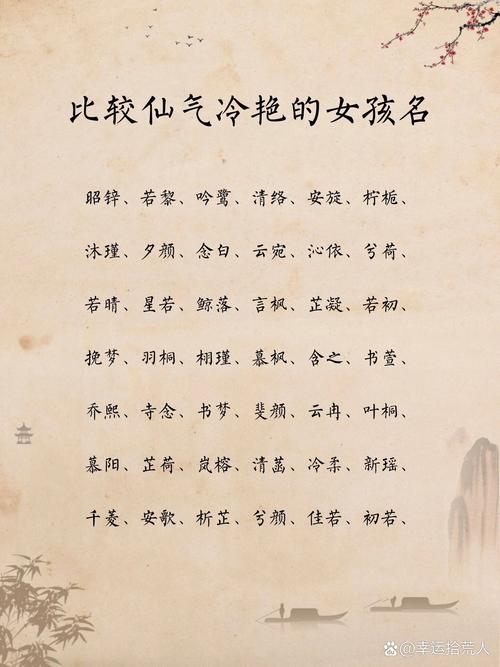 比较仙气冷艳的女孩名
昭锌、若黎、吟鹭、清络、安旋、柠栀、
沐瑾、夕颜、念白、云宛、沁依、兮荷、
若晴、星若、鲸落、言枫、芷凝、若初、
挽梦、羽桐、栩瑾、慕枫、含之、书萱、
乔熙、寺念、书梦、斐颜、云冉、叶桐、
慕阳、芷荷、岚榕、清菡、冷柔、新瑶、
千菱、安歌、析芷、兮颜、佳若、初若、
@幸运拾荒人